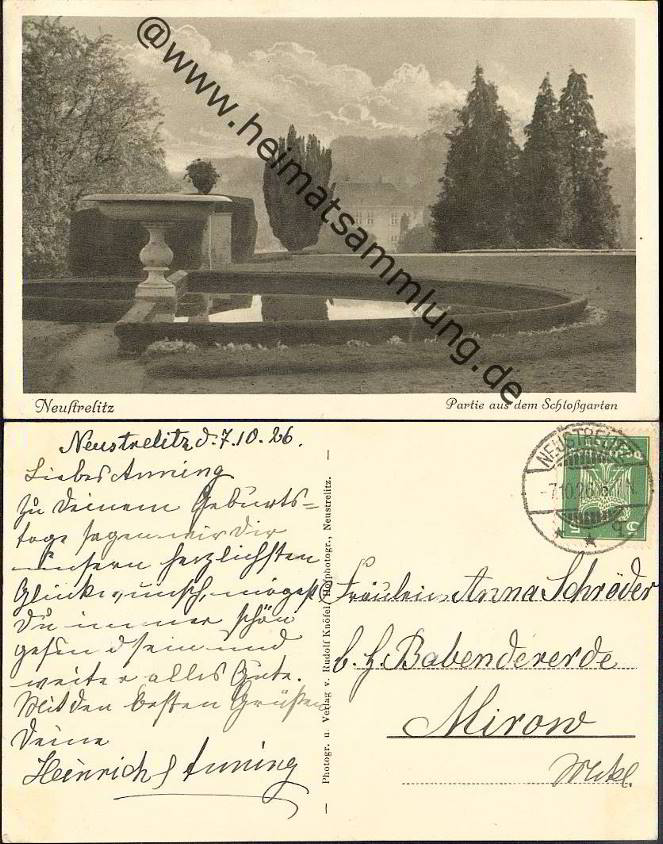 @www.heimatsammlung.de
Neustrelitz
Partie aus dem Schloßgarten
Neustrelitz d. 7.10.26.
Liebes Anning
Zu deinem Geburts=
tage sagen wir dir
unsern herzlichsten
Glückwunsch, mögest
Du immer schön
gesund sein und
weiter alles Gute.
Mit den besten Grüßen
Deine
Heinrich &
Photogr. u. Verlag v. Rudolf Knöfel, Hofphotogr., Neustrelitz.
NEUSTRELITZ
-7.10.26.
Fräulein Anna Schröder
b. H. Babendererde
Mirow
Meckl.